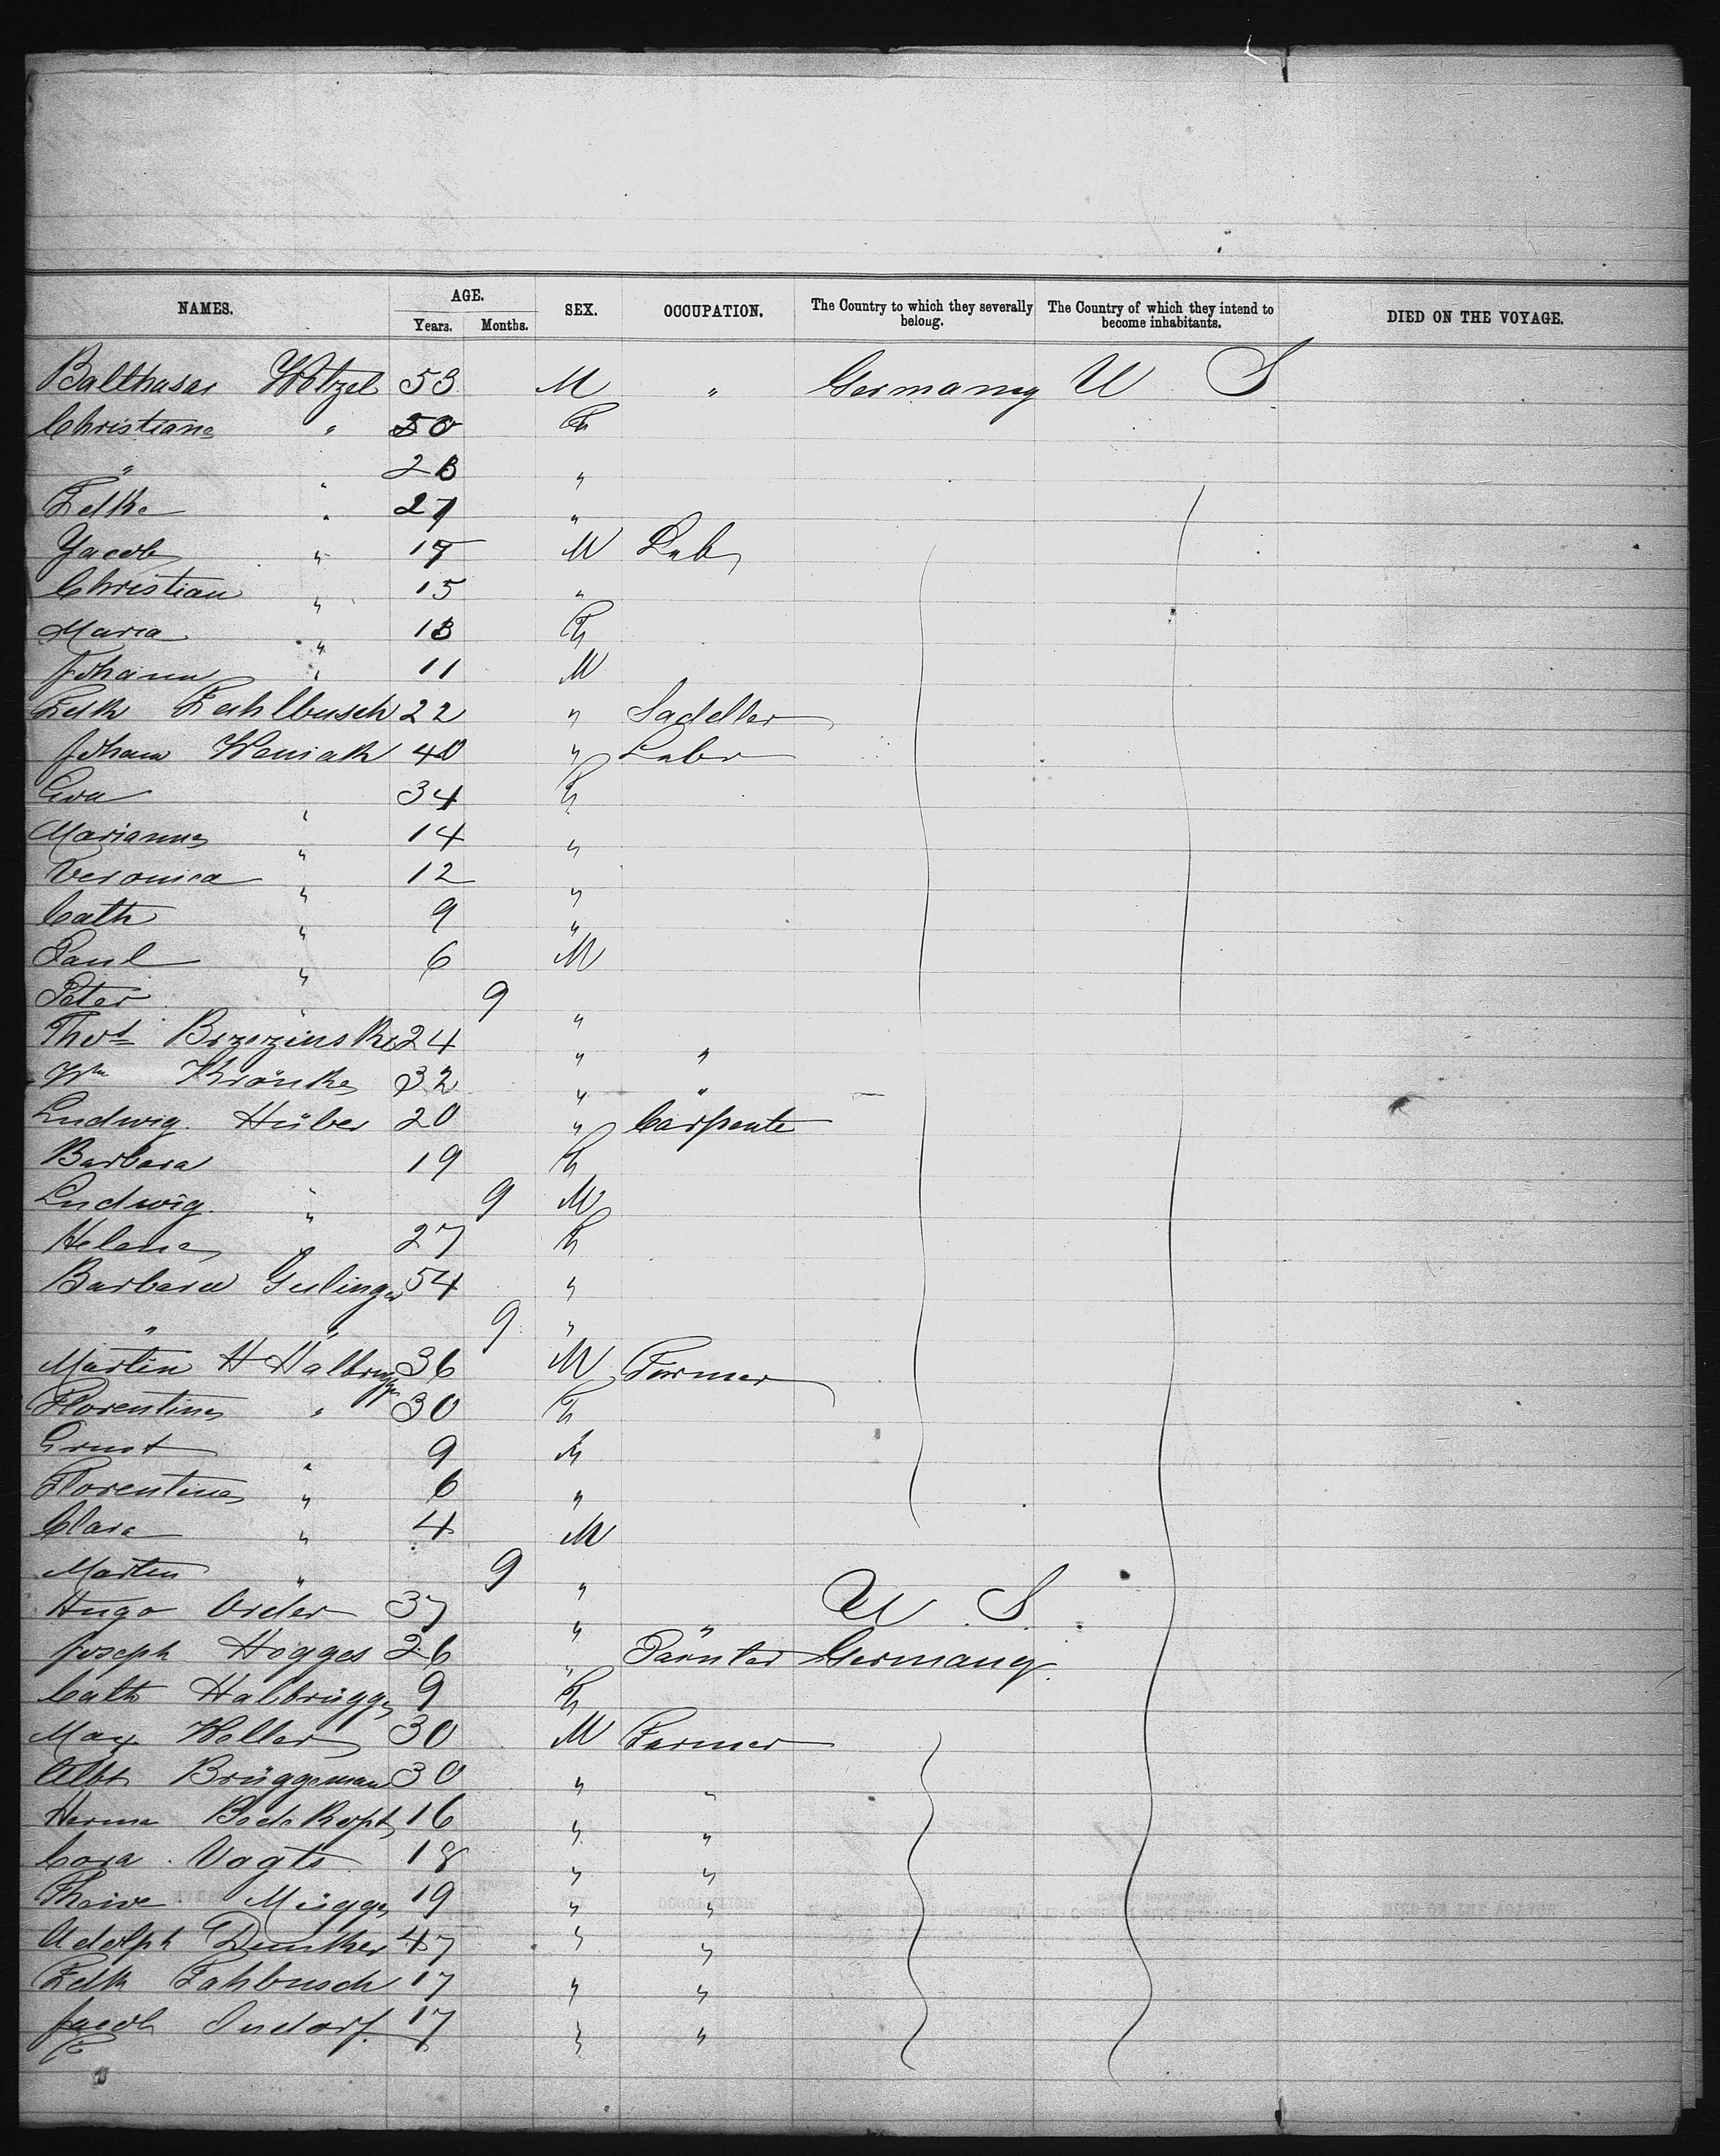 NAMES. AGE. Years. Months. SEX. OCCUPATION. The Country to which they severally belong. The Country of which they intend to become inhabitants. DIED ON THE VOYAGE.
Balthasar Wötzel 53 M " Germany U S
Christiane " 50 F
" " 23 "
Fdke " 27 "
Jacob " 17 M Lab
Christian " 15 "
Maria " 13 F
Johann " 11 M
Fdk Fahlbusch 22 " Saddler
Johann Weniak 40 " Labr
Eva " 34 F
Marianne " 14 "
Veronica " 12 "
Cath " 9 "
Paul " 6 M
Peter " 9 "
Thos Brzezinski 24 " "
Wm Krönke 32 " "
Ludwig Hüber 20 " Carpente
Barbara " 19 F
Ludwig " 9 M
Helene " 27 F
Barbara Geilinger 54 "
" " 9 "
Martin H Halbrügge 36 M Farmer
Florentine " 30 F
Ernst " 9 M
Florentine " 6 "
Clara " 4 M
Martin " 9 "
Hugo Order 37 " " U S
Joseph Högges 26 " Painter Germany
Cath Halbrügge 9 F
Max Heller 30 M Farmer
Albt Brüggeman 30 " "
Herm 16 " "
Cora Vogts 18 " "
Mügge 19 " "
Adolph Dunker 47 " "
Fdk Fahbusch 17 " "
Jacob Ondorf 17 " "